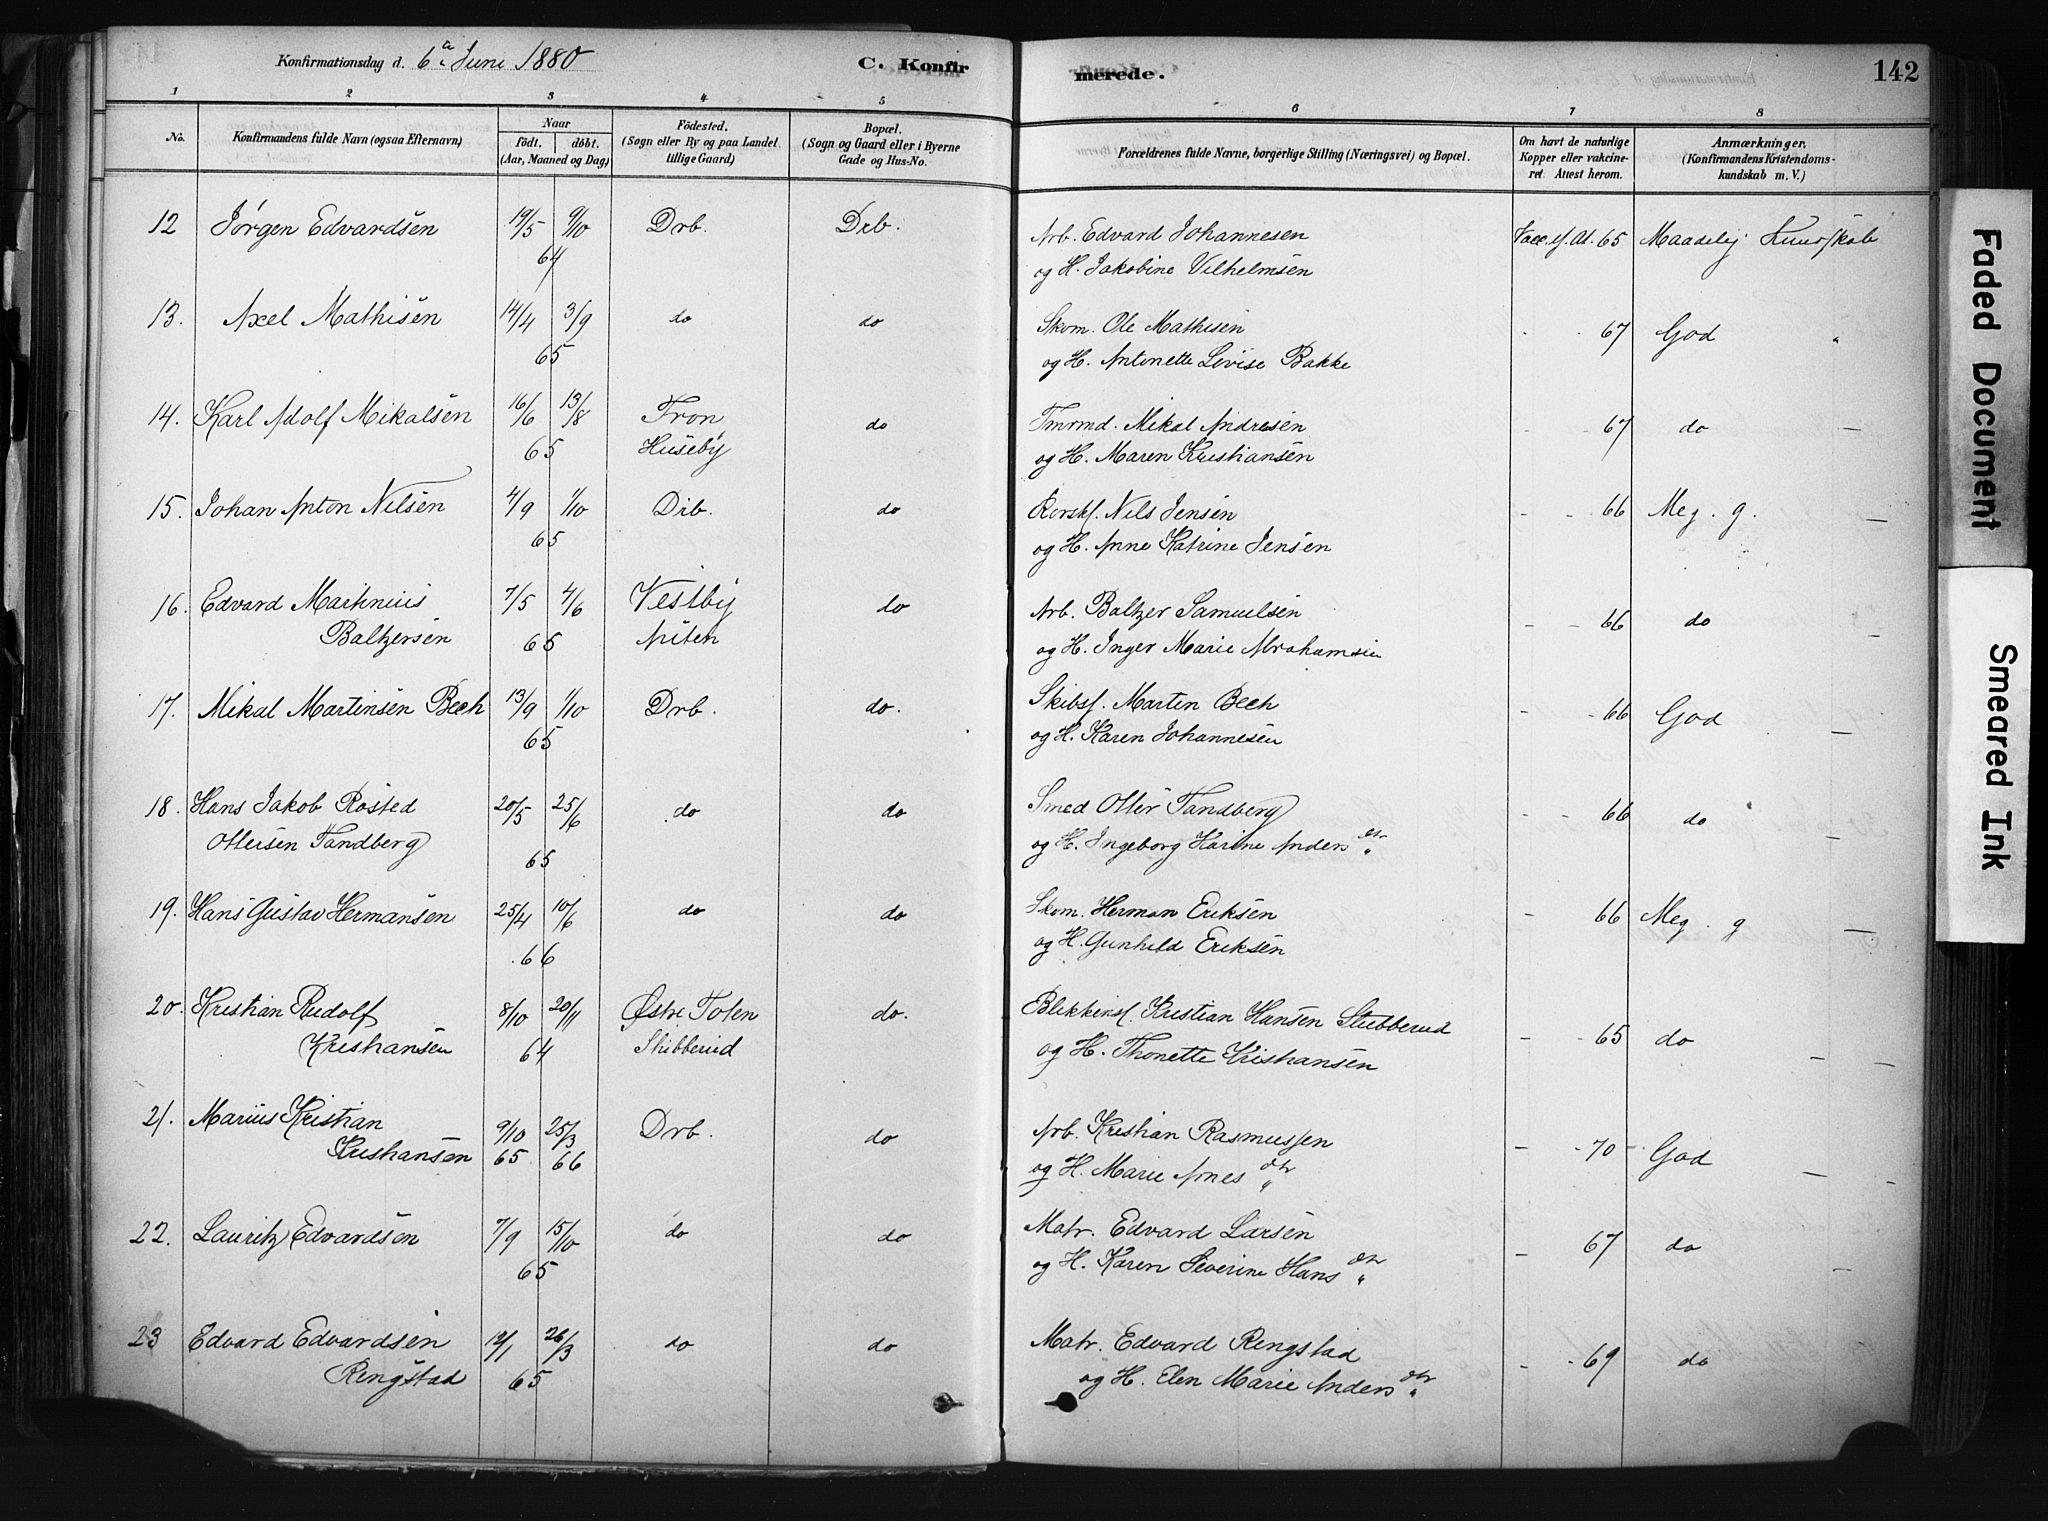 Konfirmationsdag d. 6te Juni 1880
C. Konfir merede.
142
1 2 3 4 5 6 7 8
No.
Konfirmandens fulde Navn (ogsaa Efternavn)
Naar
født. døbt.
(Aar, Maaned og Dag)
Fødested.
(Sogn eller By og paa Landet
tillige Gaard)
Bopæl.
(Sogn og Gaard eller i Byerne
Gade og Hus-No.
Forældrenes fulde Navne, borgerlige Stilling (Næringsvei) og Bopæl.
Om havt de naturlige
Kopper eller vakcine-
ret. Attest herom.
Anmærkninger.
(Konfirmandens Kristendoms-
kundskab m. V.)
12 Jørgen Edvardsen 19/5 9/10 Drb. Drb. Arb. Edvard Johannesen Vacc. ef. At. 65 Maadelig Kundskab
64 og H. Jakobine Vilhelmsen
13. Axel Mathisen 14/4 3/9 do do Skom. Ole Mathisen - - 67 God "
65 og H. Antonette Lovise Bakke
14. Karl Adolf Mikalsen 16/6 13/8 Tron do Tmrmd. Mikal Andresen - - 67 do —
65 Huseby og H. Maren Kristiansen
15. Johan Anton Nilsen 4/9 1/10 Drb. do Nils Jensen - - 66 Meg. g. —
65 og H. Anne Katrine Jensen
16. Edvard Martinius 7/5 4/6 Vestby do Arb. Baltzer Samuelsen - - 66 do —
Baltzersen 65 og H. Inger Marie Abrahamsen
17. Mikal Martinsen Bech 13/9 1/10 Drb. do. Skibsf. Martin Bech - - 66 God —
65 og H. Karen Johannesen
18. Hans Jakob Rosted 20/5 25/6 do do Smed Otter Tandberg - - 66 do —
Ottersen Tandberg 65 og H. Ingeborg Karine Anders dtr "
19. Hans Gustav Hermansen 25/4 10/6 do do Skom. Herman Eriksen - 66 Meg. g —
66 og H. Gunhild Eriksen
20. Kristian Rudolf 8/10 20/11 Østre Toten do. Blikkensl. Kristian Hansen Stubberud - - 65 do —
Kristiansen 64 og H. Thonette Kristiansen
21. Marius Kristian 9/10 25/3 Drb. do Arb. Kristian Rasmussen - - 70 - God —
Kristiansen 65 66 og H. Marie Arnes dtr "
22. Lauritz Edvardsen 7/9 15/10 do do Matr. Edvard Larsen - 67 do —
65 og H. Karen Severine Hans dtr "
23 Edvard Edvardsen 12/1 26/3 do do Matr. Edvard Rengstad - - 69 do
Rengstad 65 og H. Elen Marie Anders dtr "
Faded Document
Smeared Ink